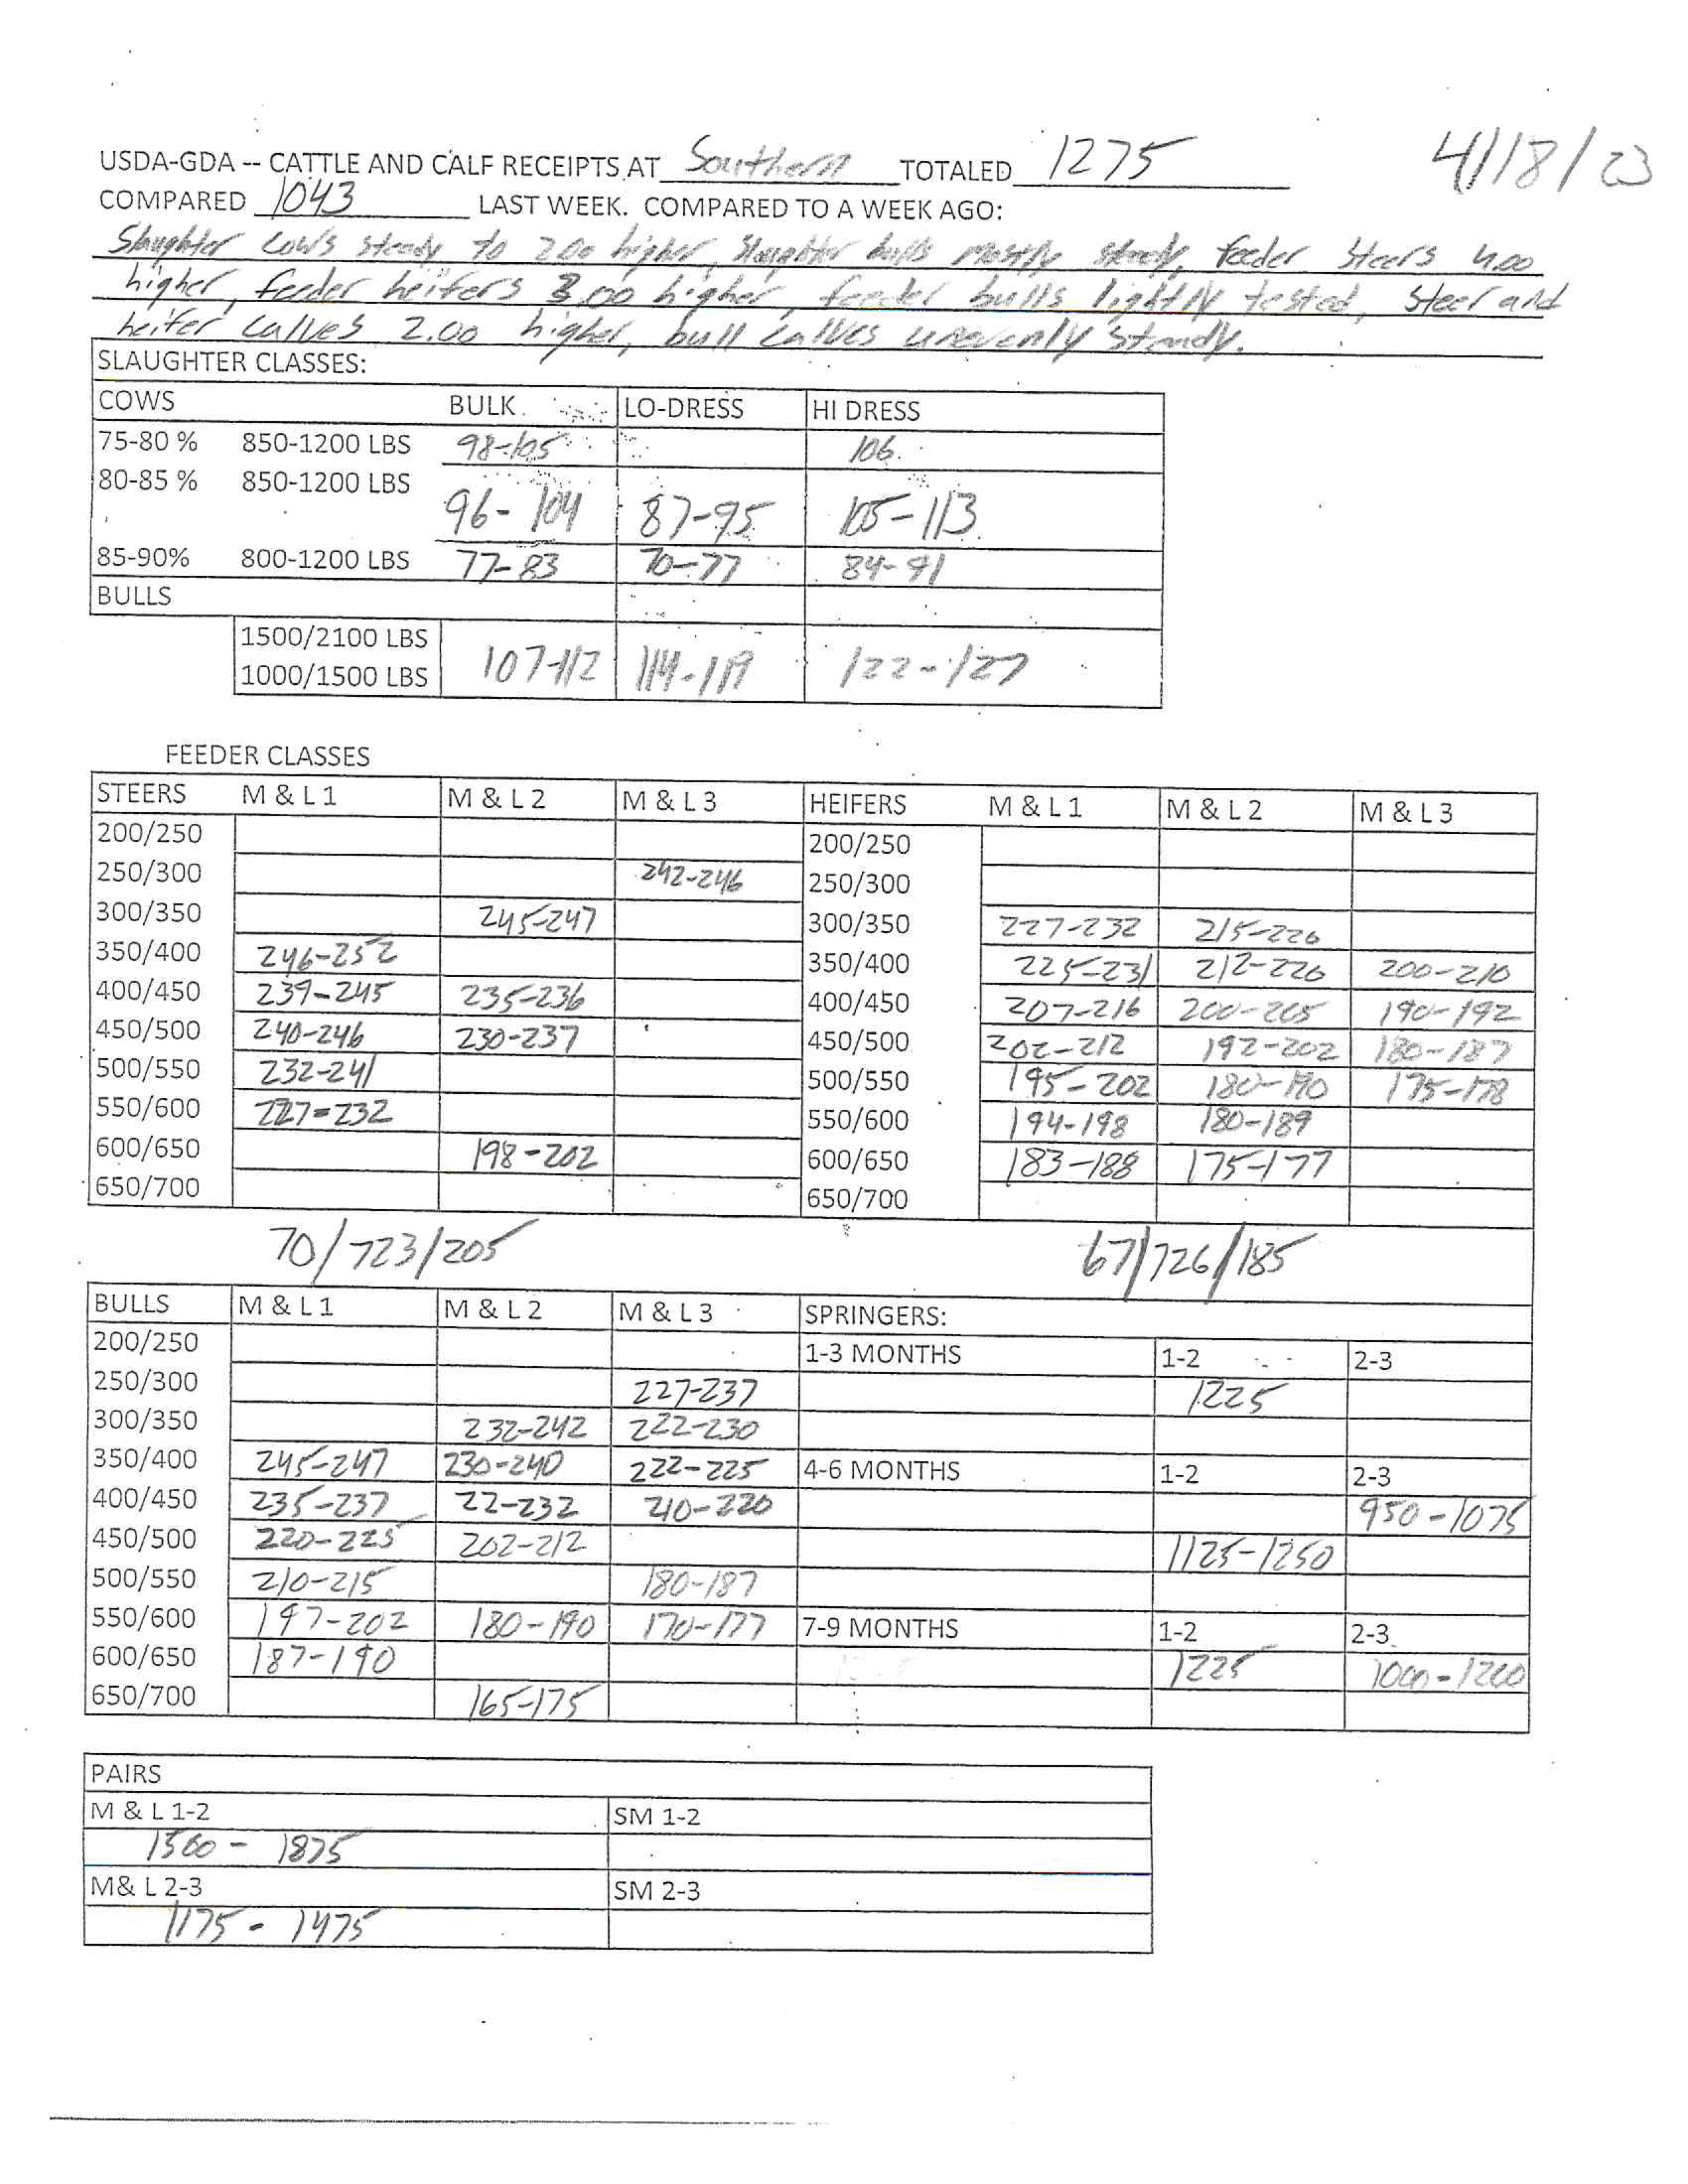 4/18/23
USDA-GDA -- CATTLE AND CALF RECEIPTS AT Southern TOTALED 1275
COMPARED 1043 LAST WEEK. COMPARED TO A WEEK AGO:
Slaughter cows steady to 2.00 higher, slaughter bulls mostly steady, feeder steers 4.00
higher, feeder heifers 3.00 higher, feeder bulls lightly tested, steer and
heifer calves 2.00 higher, bull calves unevenly steady.
SLAUGHTER CLASSES:
COWS BULK LO-DRESS HI DRESS
75-80 % 850-1200 LBS 98-105 106
80-85 % 850-1200 LBS 96-104 87-95 105-113
85-90% 800-1200 LBS 77-83 70-77 84-91
BULLS
1500/2100 LBS
1000/1500 LBS 107-112 114-119 122-127
FEEDER CLASSES
STEERS M & L 1 M & L 2 M & L 3 HEIFERS M & L 1 M & L 2 M & L 3
200/250 200/250
250/300 242-246 250/300
300/350 245-247 300/350 227-232 215-226
350/400 246-252 350/400 225-231 212-220 200-210
400/450 239-245 235-236 400/450 207-216 200-205 190-192
450/500 240-246 230-237 450/500 202-212 192-202 180-187
500/550 232-241 500/550 195-202 180-190 175-178
550/600 227-232 550/600 194-198 180-189
600/650 198-202 600/650 183-188 175-177
650/700 650/700
70/723/205 67/726/185
BULLS M & L 1 M & L 2 M & L 3 SPRINGERS:
200/250 1-3 MONTHS 1-2 2-3
250/300 227-237 1225
300/350 232-242 222-230
350/400 245-247 230-240 222-225 4-6 MONTHS 1-2 2-3
400/450 235-237 22-232 210-220 950-1075
450/500 220-225 202-212 1125-1250
500/550 210-215 180-187
550/600 197-202 180-190 170-177 7-9 MONTHS 1-2 2-3
600/650 187-190 1225 1000-1200
650/700 165-175
PAIRS
M & L 1-2 SM 1-2
1500 - 1875
M& L 2-3 SM 2-3
1175 - 1475